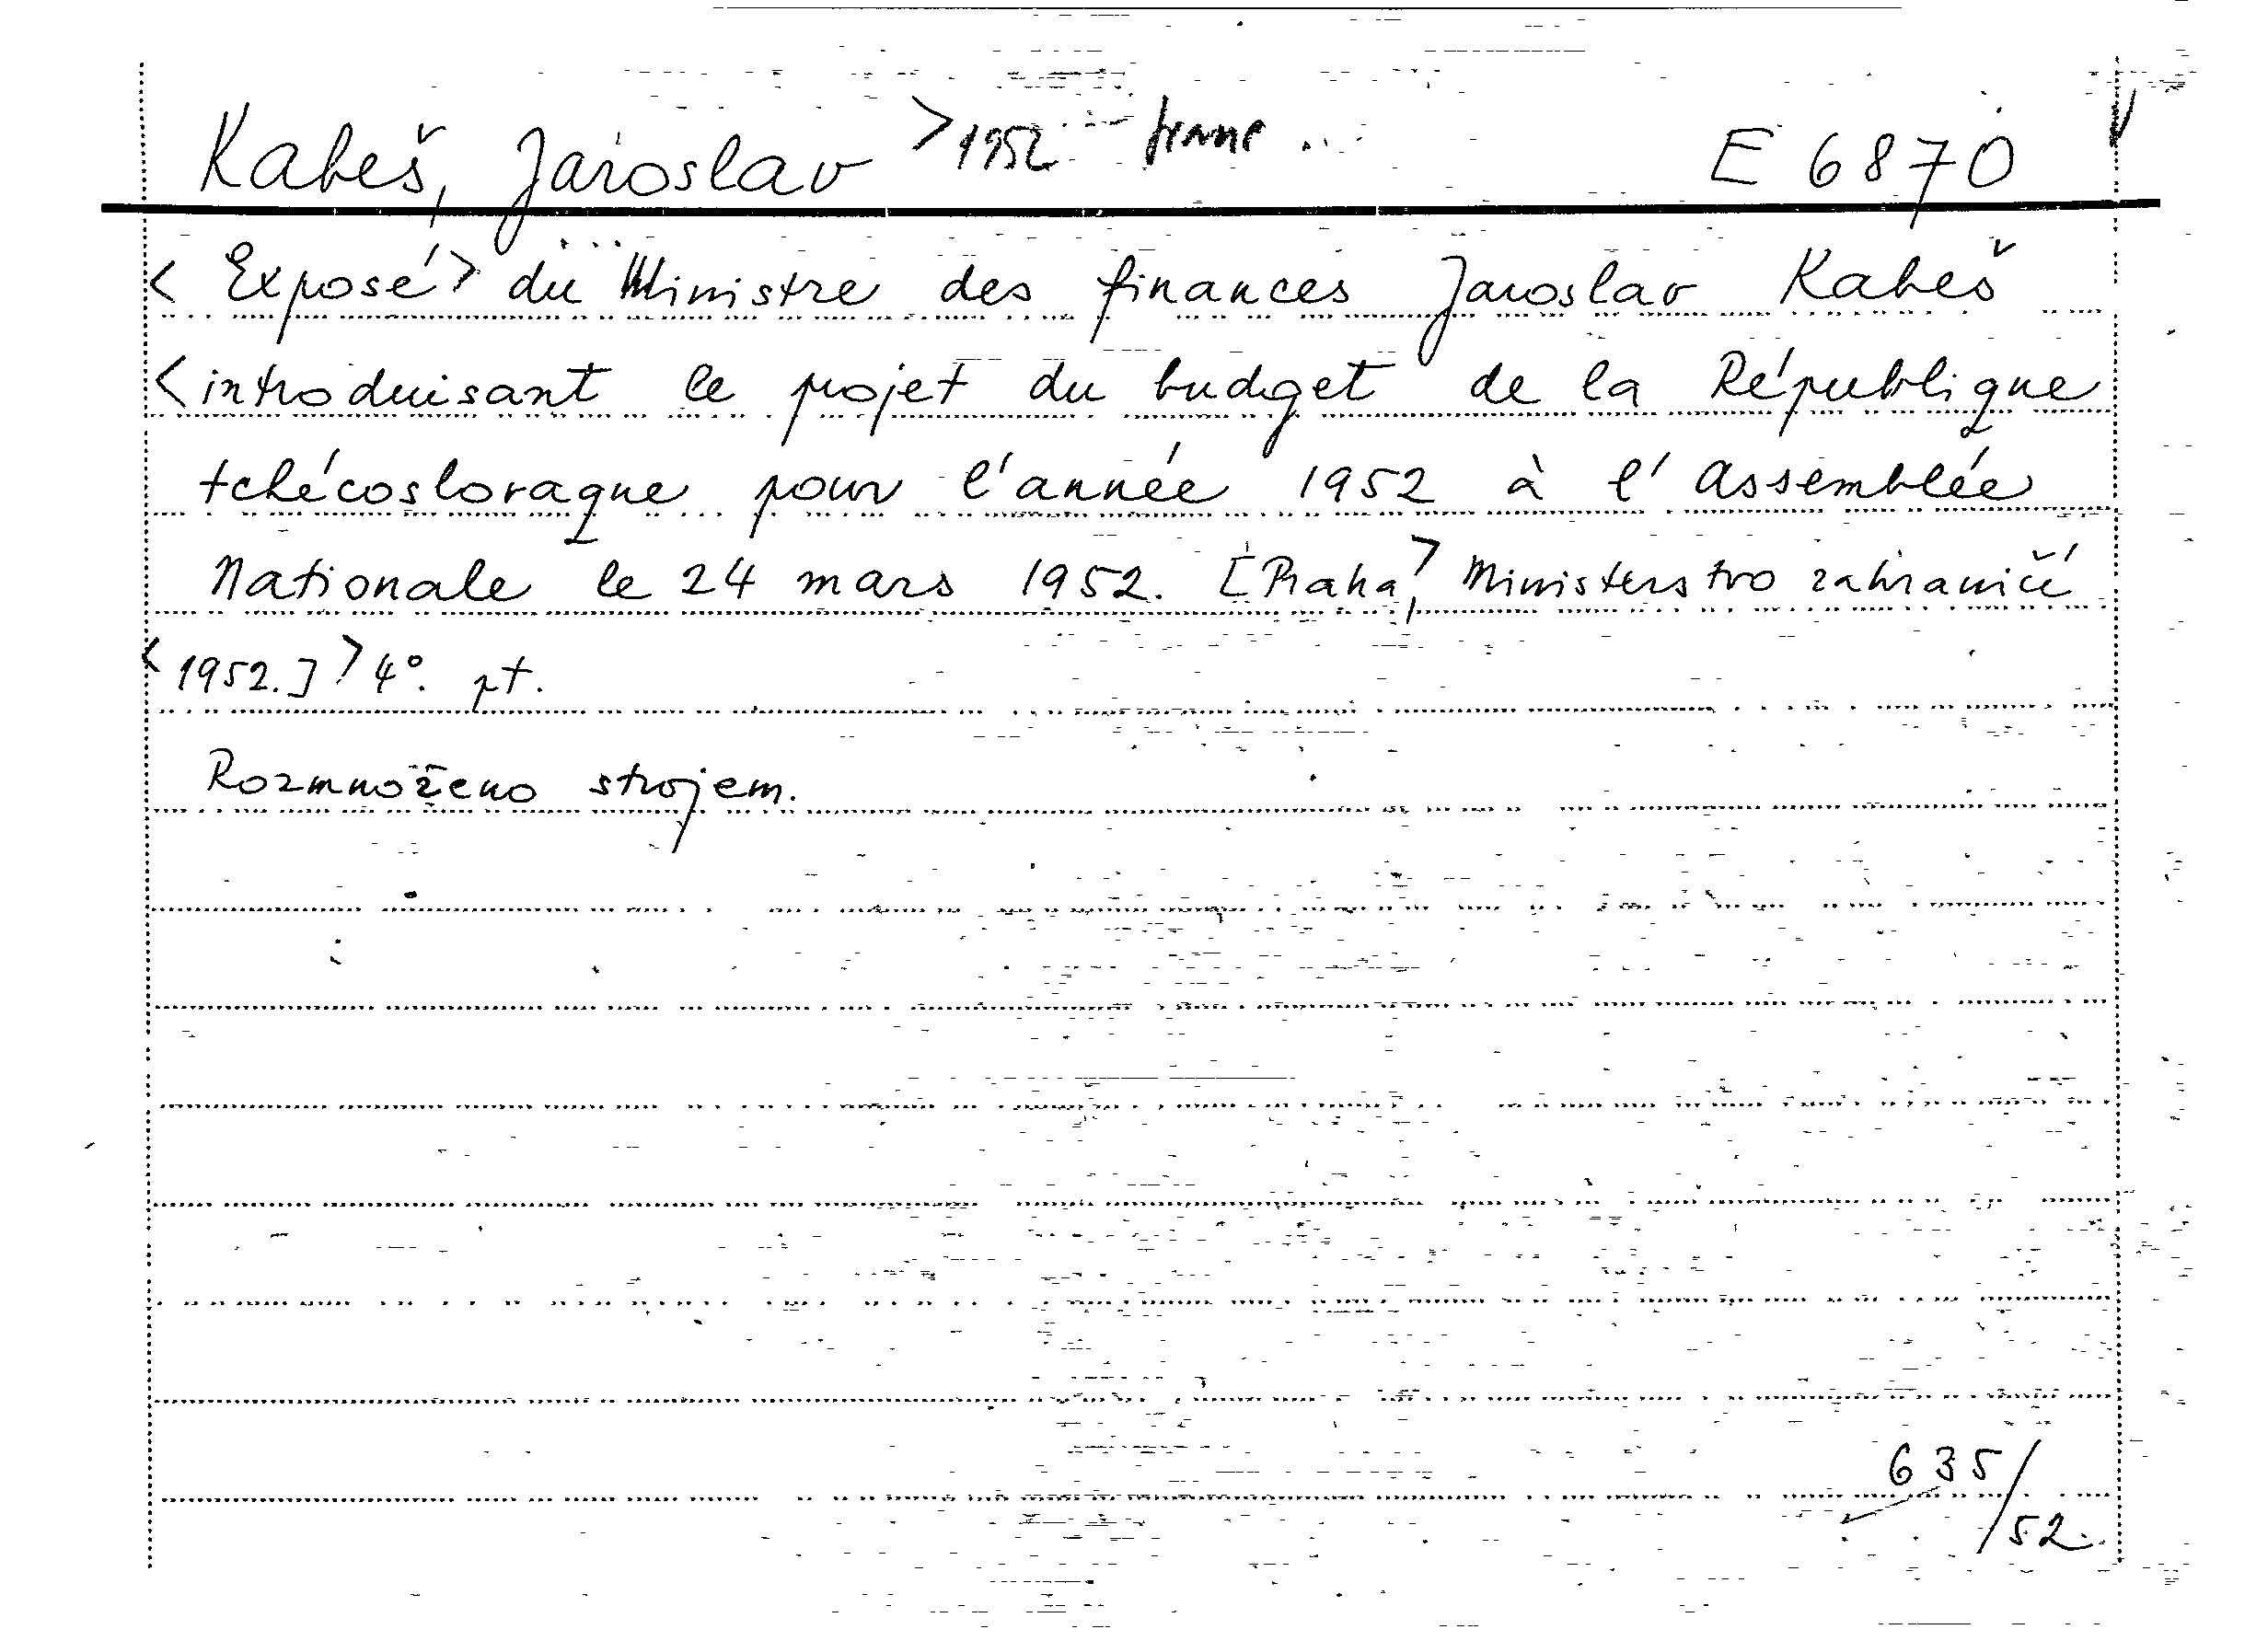 Kabeš, Jaroslav > 1952 franc. E 6870
< Exposé > du Ministre des finances Jaroslav Kabeš
< introduisant le projet du budget de la République
tchécoslovaque pour l'année 1952 à l'Assemblée
Nationale le 24 mars 1952. [Praha,> Ministerstvo zahraničí
< 1952.] > 4°. pt.
Rozmnoženo strojem.
635/52.